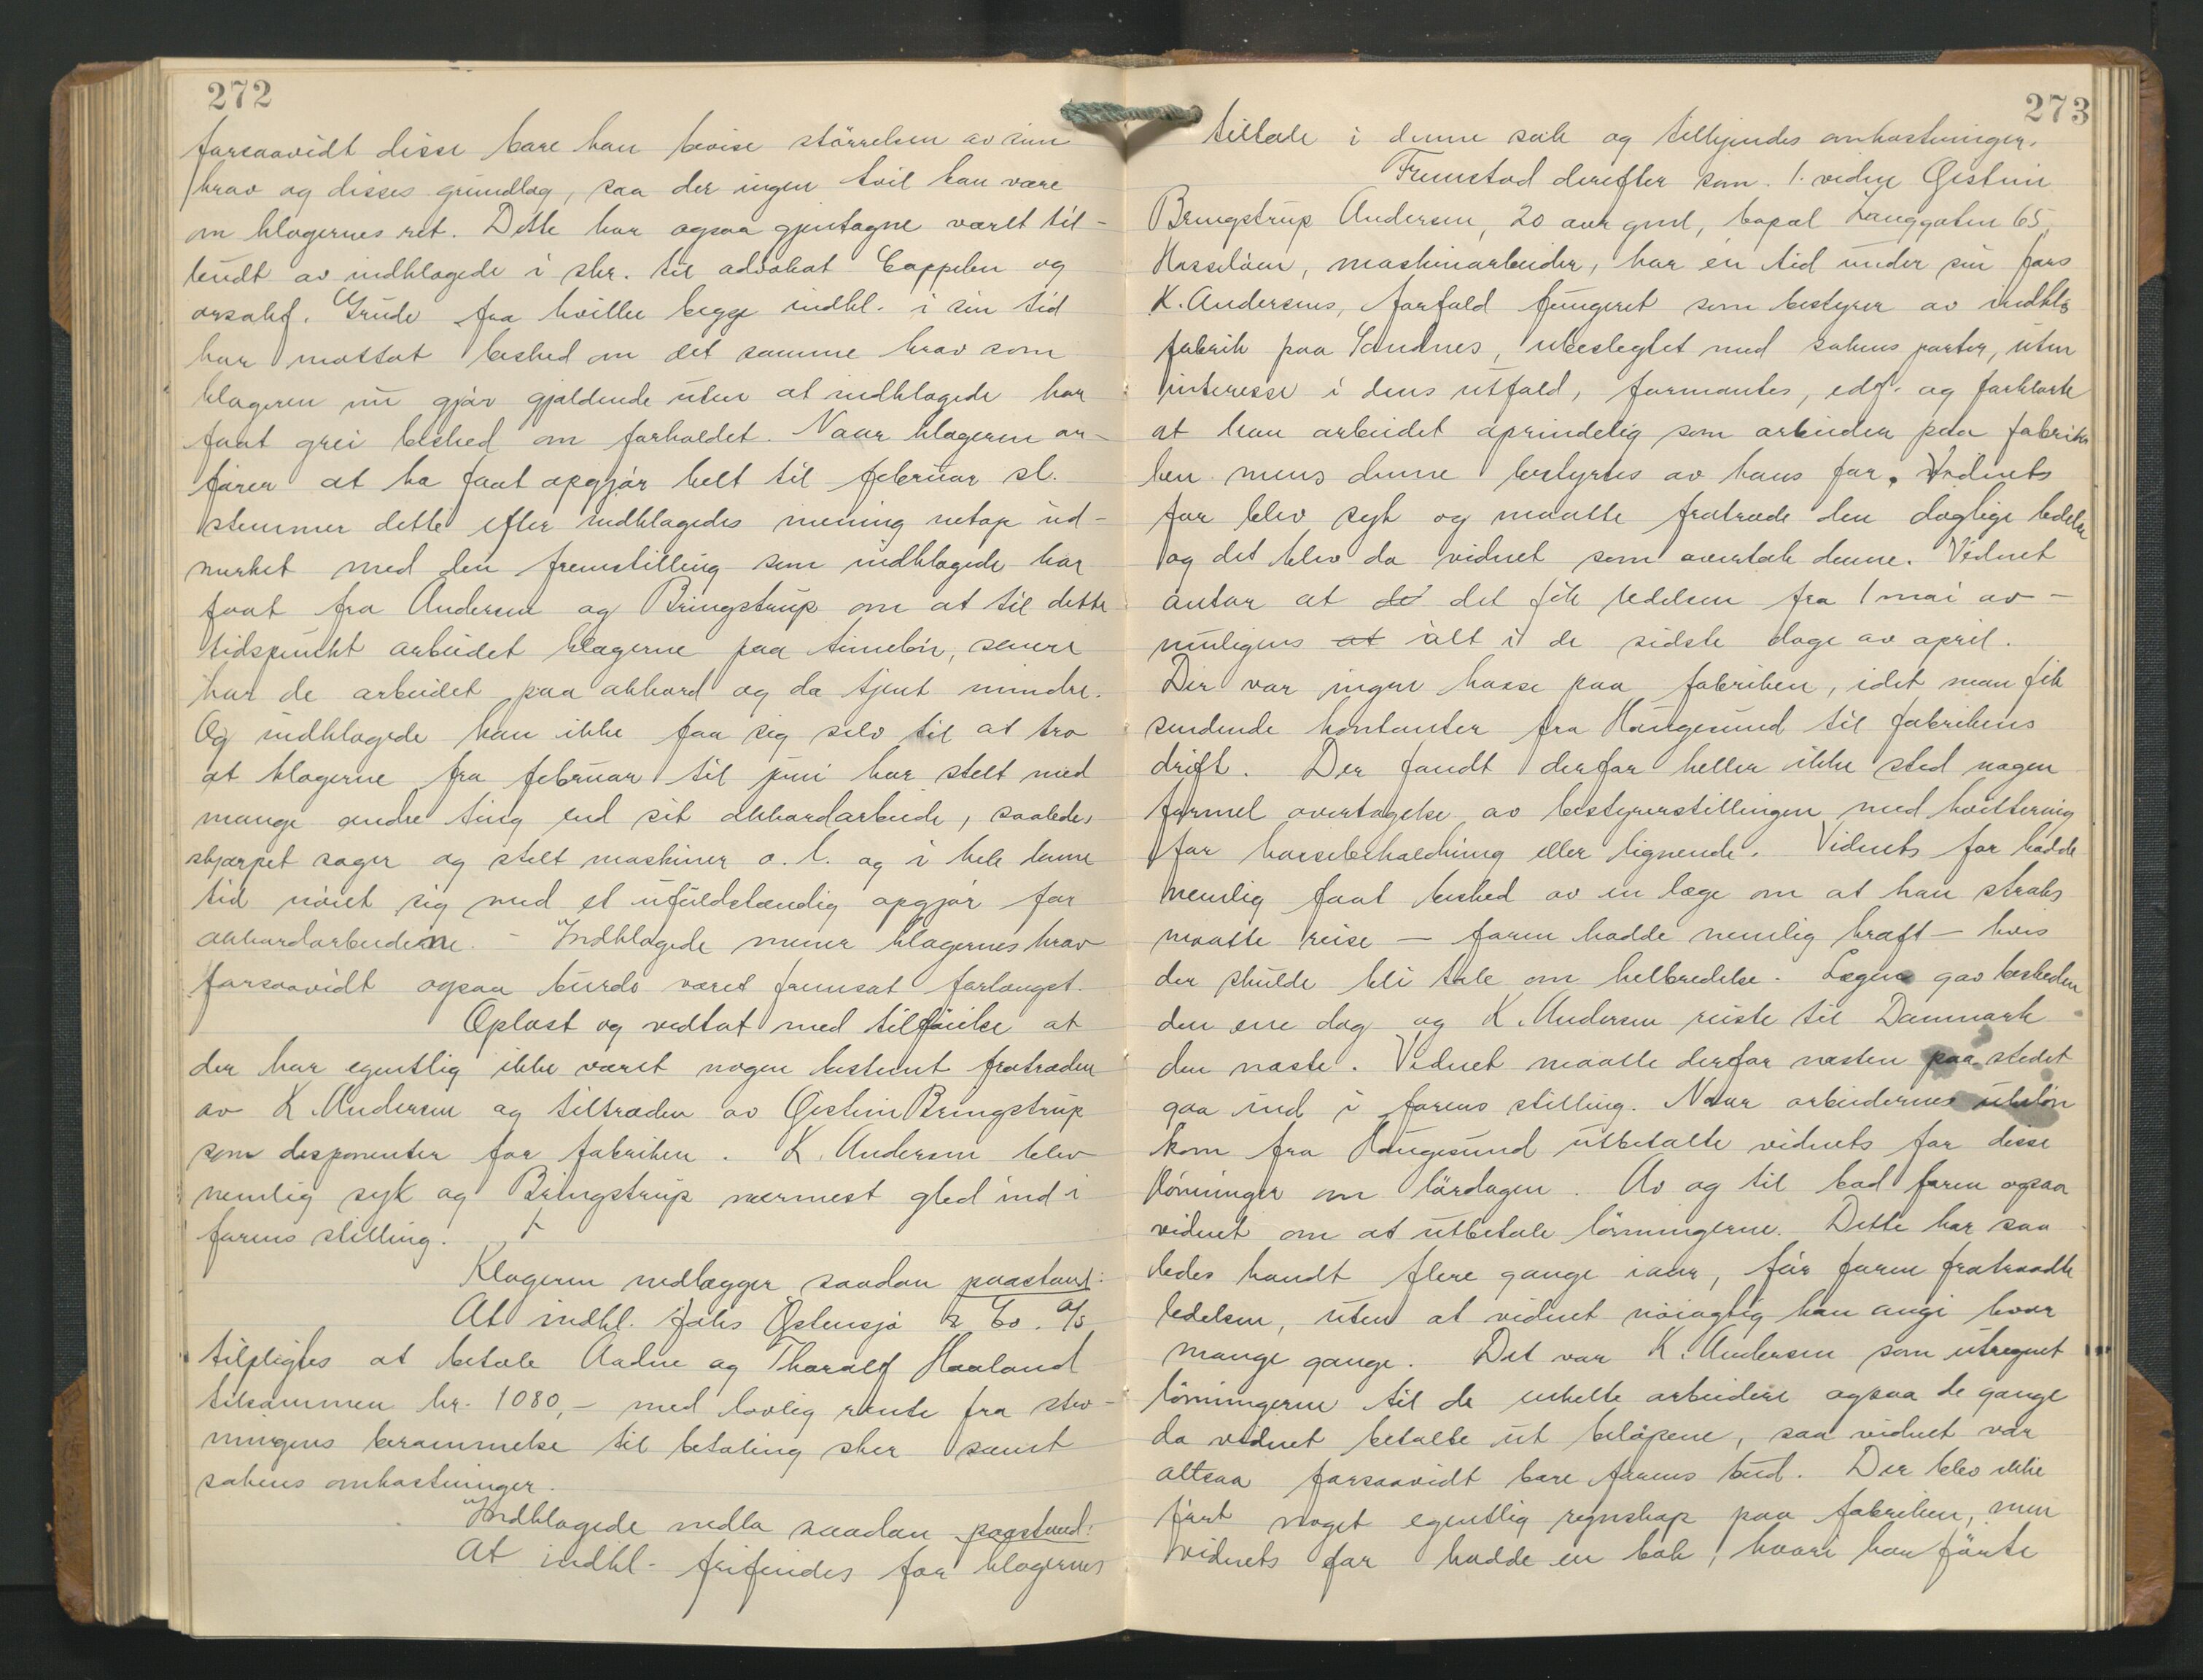 272
forsaavidt disse bare kan bevise størrelsen av sine
krav og disses grundlag, saa der ingen tvil kan være
om klagernes ret. Dette har ogsaa gjentagne været til-
budt av indklagede i skr. til advokat Cappelen og
orsakf. Grude fra hvilke begge indkl. i sin tid
har mottat besked om det samme krav som
klageren nu gjør gjældende uten at indklagede har
faat grei besked om forholdet. Naar klageren an-
fører at ha faat opgjør helt til februar sl.
stemmer dette efter indklagedes mening netop ud-
merket med den fremstilling som indklagede har
faat fra Andersen og Bringstrup om at til dette
tidspunkt arbeidet klagerne paa timeløn, senere
har de arbeidet paa akkord og da tjent mindre.
Og indklagede kan ikke faa sig selv til at tro
at klagerne fra februar til juni har stelt med
mange andre ting end sit akkordarbeide, saaledes
skjærpet sager og stelt maskiner o. l. og i hele denne
tid nøiet sig med et ufuldstændig opgjør for
akkordarbeidene. - Indklagede mener klagernes krav
forsaavidt ogsaa burde været fremsat forlængst.
Oplæst og vedtat med tilføielse at
der har egentlig ikke været nogen bestemt fratræden
av K. Andersen og tiltræden av Gestein Bringstrup
som disponenter for fabriken. K. Andersen blev
nemlig syk og Bringstrup nærmest gled ind i
farens stilling.
Klageren nedlægger saadan paastand:
At indkl. Johs Østensjø & Co. A/S
tilpligtes at betale Aadne og Thoralf Haaland
tilsammen kr. 1080,- med lovlig rente fra stev-
ningens berammelse til betaling sker samt
sakens omkostninger.
Indklagede nedla saadan paastand:
At indkl. frifindes for klagernes
273
tiltale i denne sak og tilkjendes omkostninger.
Fremstod derefter som 1. vidne Gestein
Bringstrup Andersen, 20 aar gml, bopæl Langgaten 65,
maskinarbeider, har en tid under sin fars
K. Andersens, forfald fungeret som bestyrer av indkl's
fabrik paa Sandnes, ubeslegtet med sakens parter, uten
interesse i dens utfald, formantes, edf. og forklarte
at han arbeidet oprindelig som arbeider paa fabri-
ken mens denne bestyrtes av hans far. Vidnets
far blev syk og maatte fratræde den daglige ledelse
og det blev da vidnet som overtok denne. Vidnet
antar at de det fik ledelsen fra 1 mai ev-
muligens at alt i de sidste dage av april.
Der var ingen kasse paa fabriken, idet man fik
sendende kontanter fra Haugesund til fabrikens
drift. Der fandt derfor heller ikke sted nogen
formel overtagelse av bestyrerstillingen med kvittering
for kassebeholdning eller lignende. Vidnets far hadde
nemlig faat besked av en læge om at han straks
maatte reise — faren hadde nemlig kræft — hvis
der skulde bli tale om helbredelse. Lægen gav beskeden
den ene dag og K. Andersen reiste til Danmark
den næste. Vidnet maatte derfor næsten paa stedet
gaa ind i farens stilling. Naar arbeidernes ukeløn
kom fra Haugesund utbetalte vidnets far disse
lønninger om lørdagen. Av og til bad faren ogsaa
vidnet om at utbetale lønningerne. Dette har saa
ledes hændt flere gange iaar, før faren fratraadte
ledelsen, uten at vidnet nøiagtig kan angi hvor
mange gange. Det var K. Andersen som utregnet
lønningerne til de enkelte arbeidere ogsaa de gange
da vidnet betalte ut beløpene, saa vidnet var
altsaa forsaavidt bare farens bud. Der blev ikke
ført noget egentlig regnskap paa fabriken, men
vidnets far hadde en bok, hvori han førte